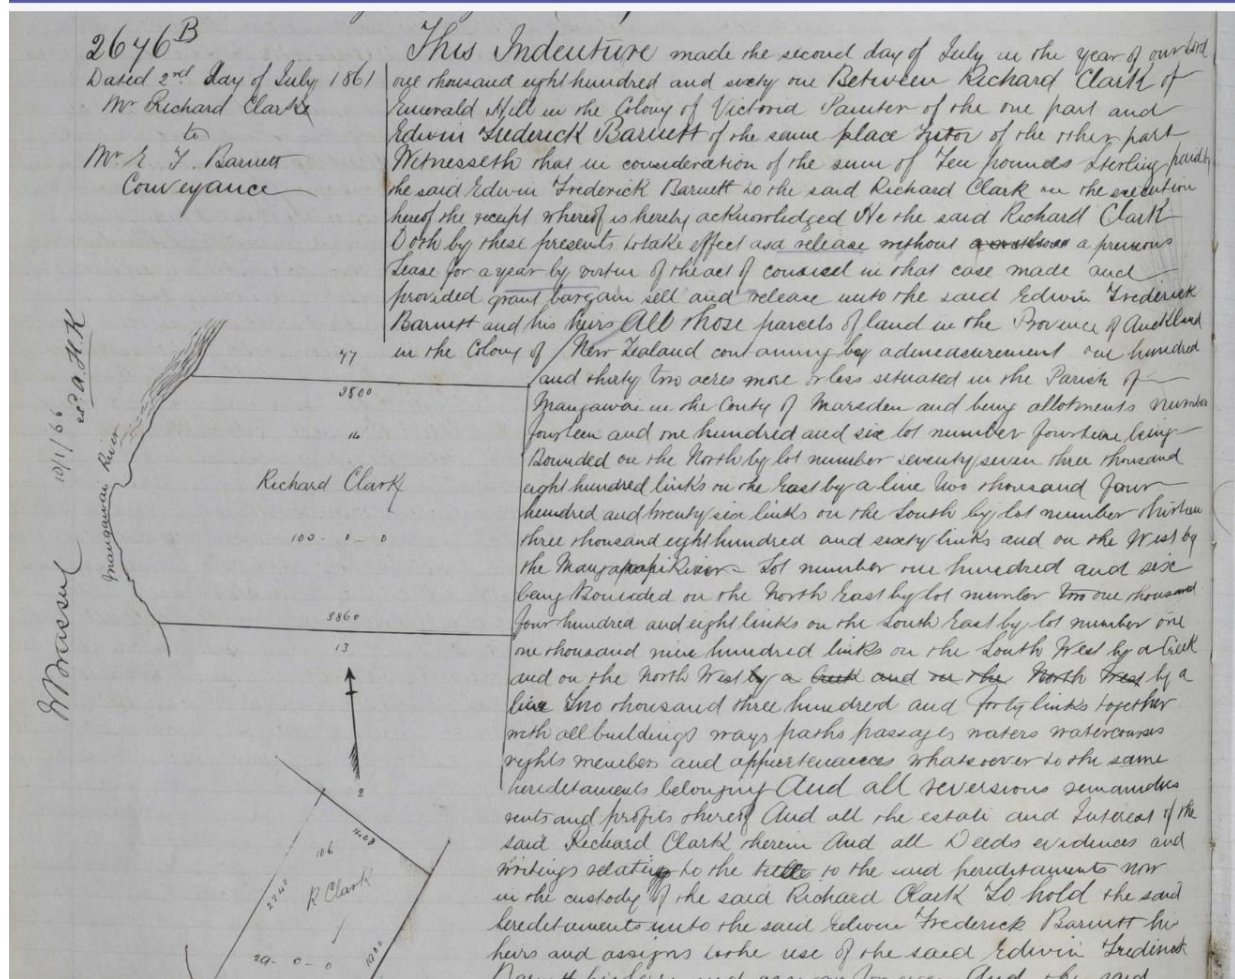 2646 B
Dated 2nd Day of July 1861
Mr Richard Clarke
to
Mr E. F. Barnett
Conveyance
This Indenture made the second day of July in the year of our Lord
one thousand eight hundred and sixty one Between Richard Clark of
Emerald Hill in the Colony of Victoria Painter of the one part and
Edwin Frederick Barnett of the same place Tutor of the other part
Witnesseth that in consideration of the sum of Ten pounds Sterling paid by
the said Edwin Frederick Barnett to the said Richard Clark on the execution
hereof the receipt whereof is hereby acknowledged He the said Richard Clark
Doth by these presents to take effect as a release without a previous
Lease for a year by virtue of the act of council in that case made and
provided grant bargain sell and release unto the said Edwin Frederick
Barnett and his heirs All those parcels of land in the Province of Auckland
in the Colony of New Zealand containing by admeasurement one hundred
and thirty two acres more or less situated in the Parish of
Mangawai in the County of Marsden and being allotments number
fourteen and one hundred and six lot number fourteen being
Bounded on the North by lot number seventy seven three thousand
eight hundred links on the East by a line two thousand four
hundred and twenty six links on the South by lot number thirteen
three thousand eight hundred and sixty links and on the West by
the River Lot number one hundred and six
being Bounded on the North East by lot number two one thousand
four hundred and eight links on the South East by lot number one
one thousand nine hundred links on the South West by a Creek
and on the North West by a Creek and on the North West by a
line Two thousand three hundred and forty links together
with all buildings ways paths passages waters watercourses
rights members and appurtenances whatsoever to the same
hereditaments belonging And all reversions remainders
rents and profits thereof And all the estate and Interest of the
said Richard Clark therein And all Deeds evidences and
writings relating to the title to the said hereditaments now
in the custody of the said Richard Clark To hold the said
hereditaments unto the said Edwin Frederick Barnett his
heirs and assigns to the use of the said Edwin Frederick
Barnett his heirs and assigns for ever And the said
77
3800
14
Richard Clark
103 - 0 - 0
Mangawai River
3860
13
10/1/66
2
1408
106
R Clark
2340
29 - 0 - 0
1900